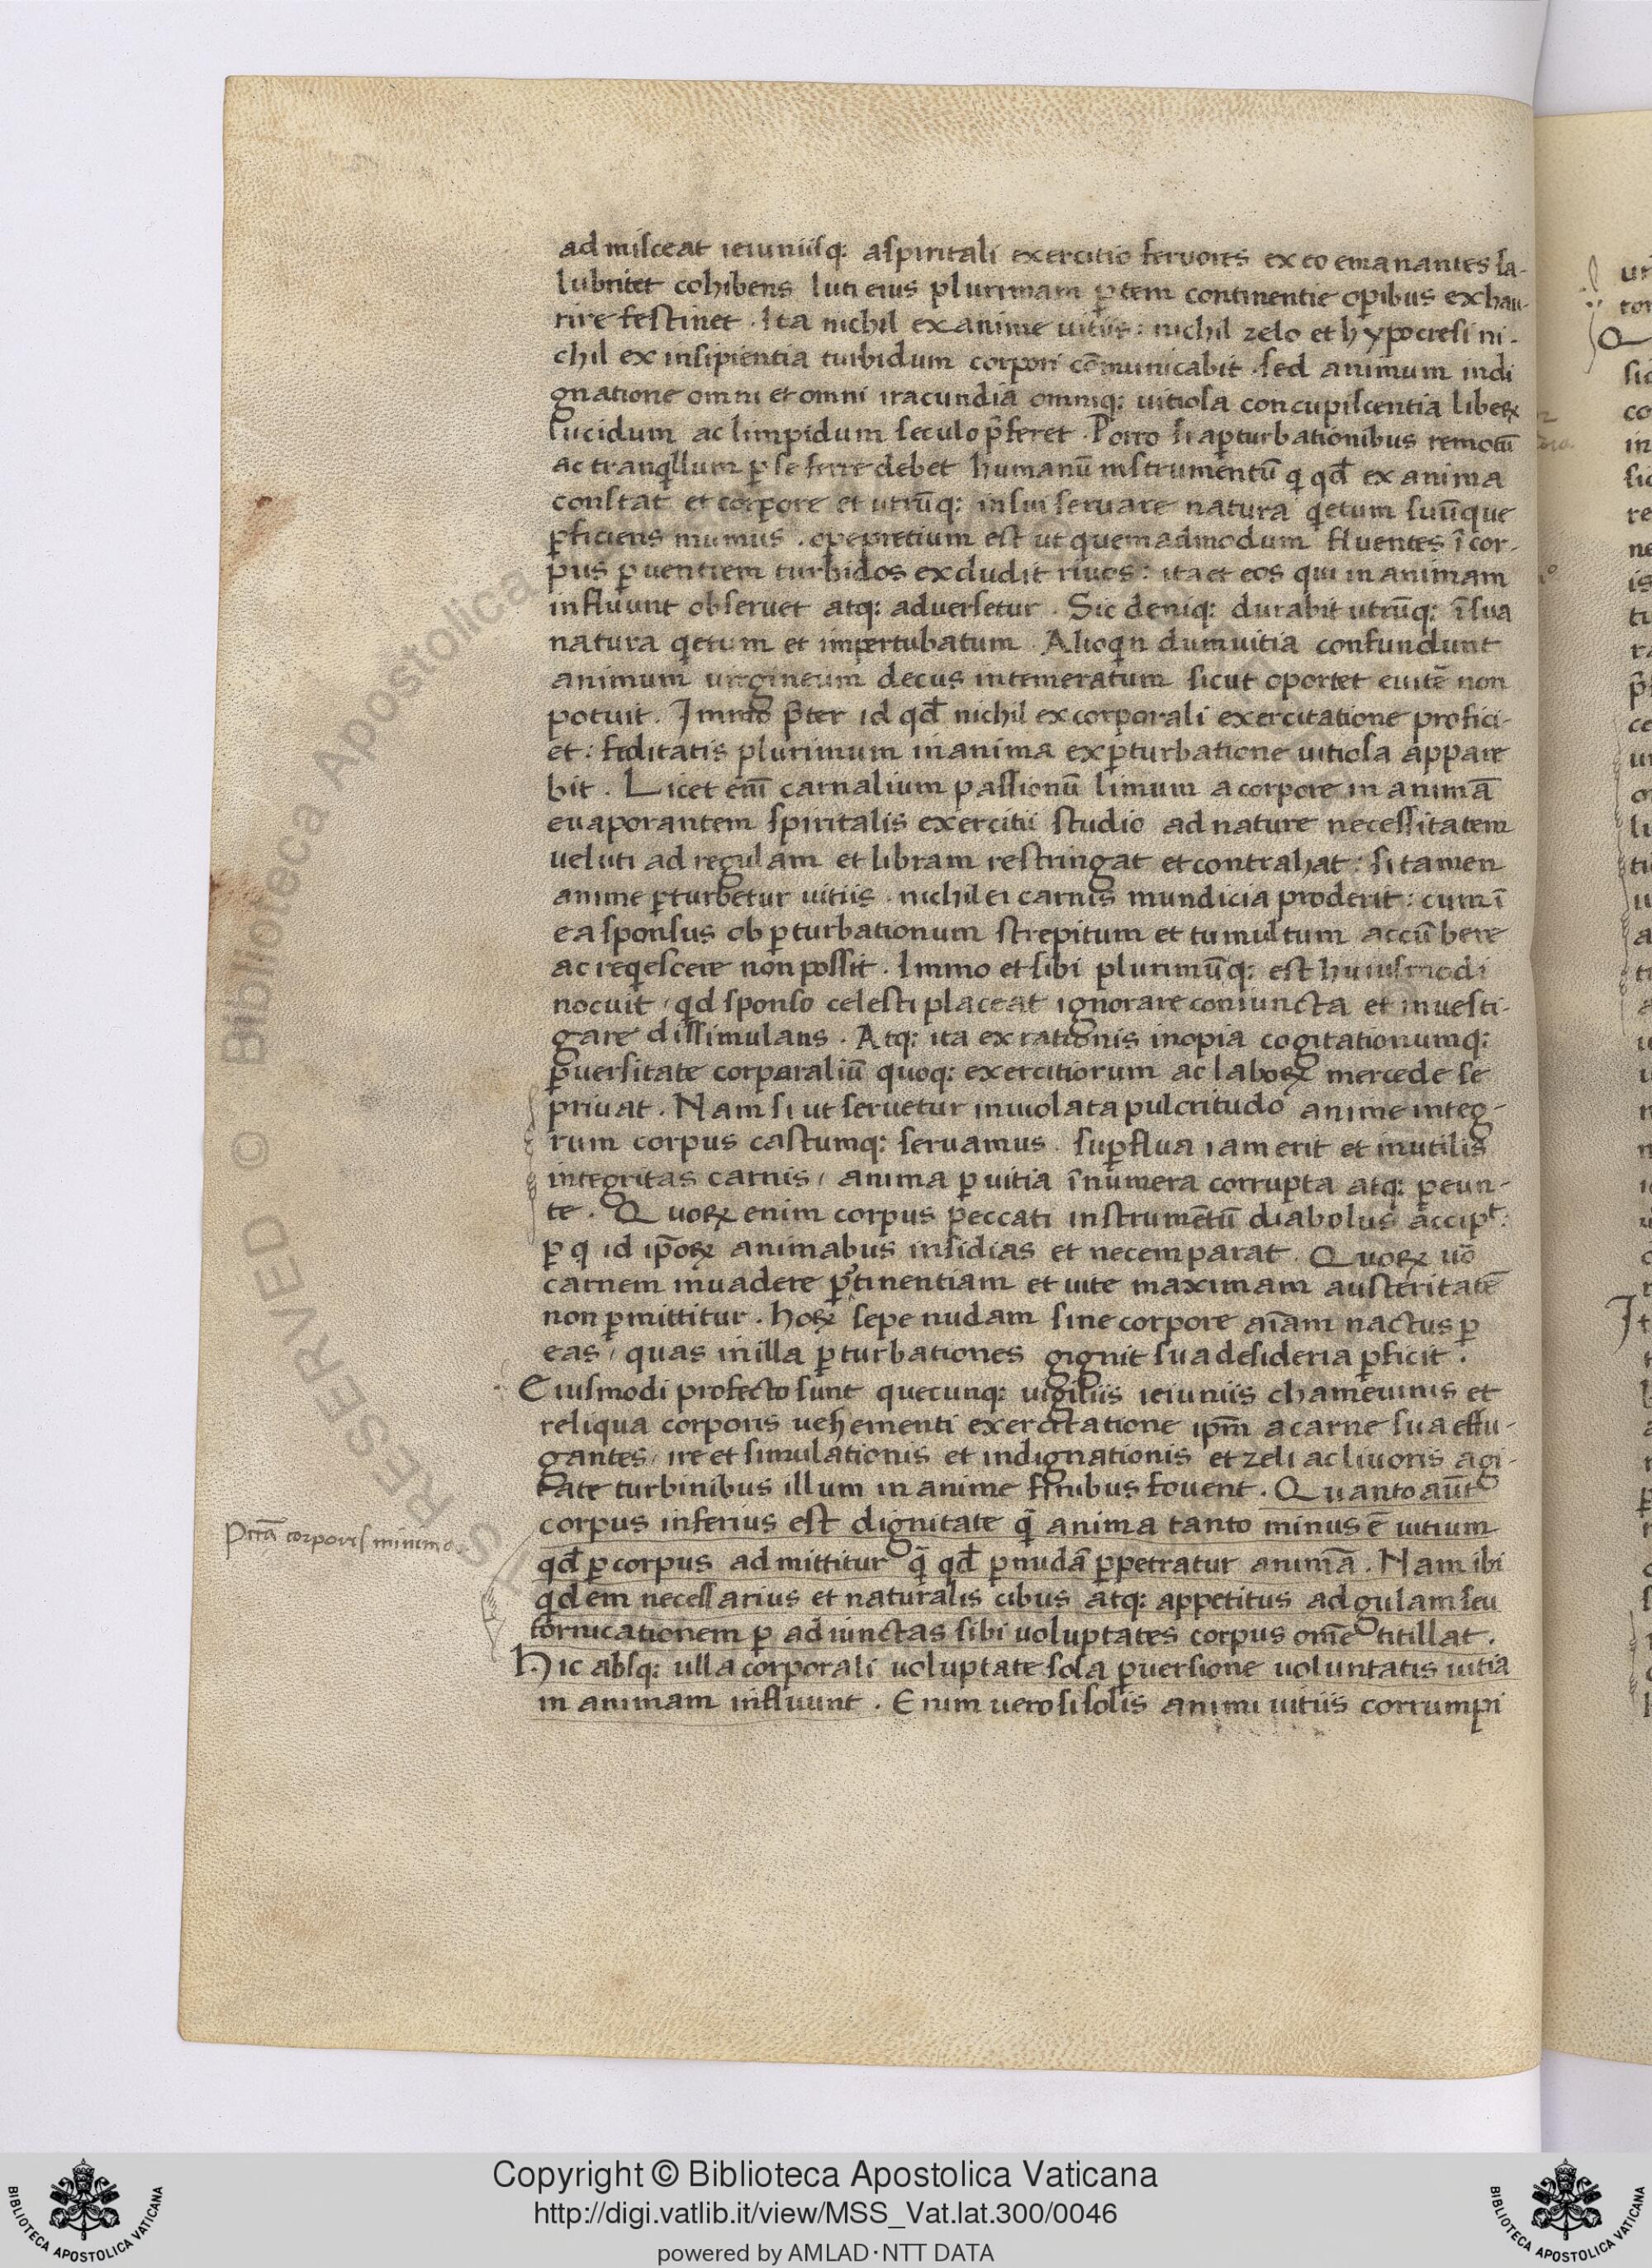 admisceat ieiuniisq; aspiritali exercitio fervores ex eo emanantes sa-
lubritet cohibens luti eius plurimam ꝑtem continentie opibus exhau-
rire festinet . Ita nichil exanime uitiis : nichil zelo et hypocresi ni-
chil ex insipientia turbidum corpori cōmunicabit . sed animum indi
gnatione omni et omni iracundia omniq; uitiosa concupiscentia liberꝝ
lucidum ac limpidum seculo p̄feret . Porro si aꝑturbationibus remotū
ac tranqllum ꝑ se ferre debet humanū instrumentū q qd̄ ex anima
constat et corpore et utrūq; in sui servare natura qetum suūque
ꝑficiens munus . opepretium est ut quemadmodum fluentes ī cor-
pus ꝑ uentrem turbidos excludit rivos : ita et eos qui in animam
influunt observet atq; adversetur . Sic deniq; durabit utrūq; ī sua
natura qetum et impertubatum . Alioqn dum uitia confundunt
animum virgineum decus intemeratum sicut oportet euitē non
potuit . Immo p̄ter id qd̄ nichil ex corporali exercitatione profici-
et : feditatis plurimum in anima ex ꝑturbatione uitiosa appare
bit . Licet eni̅ carnalium passionū limum a corpore in animā
evaporantem spiritalis exercitii studio ad nature necessitatem
veluti ad regulam et libram restringat et contrahat : si tamen
anime ꝑturbetur uitiis . nichil ei carnis mundicia proderit : cum ī
ea sponsus ob ꝑturbationum strepitum et tumultum accūbere
ac reqescere non possit . Immo et sibi plurimūq; est huiusmodi
nocuit / qd sponso celesti placeat ignorare coniuncta et investi-
gare dissimulans . Atq; ita ex rationis inopia cogitationumq;
ꝑversitate corparaliū quoq; exercitiorum ac laborꝝ mercede se
privat . Nam si ut servetur inviolata pulcritudo anime integ-
rum corpus castumq; servamus . suꝑflua iam erit et inutilis
integritas carnis / anima ꝑ uitia īnumera corrupta atq; ꝑeun-
te . Quorꝝ enim corpus peccati instrumētū diabolus accipt :
ꝑ q id ip̄orꝝ animabus insidias et necem parat . Quorꝝ uō
carnem invadere ꝑtinentiam et vite maximam austeritatē
non ꝑmittitur . horꝝ sepe nudam sine corpore aīam nactus ꝑ
eas / quas in illa ꝑturbationes gignit sua desideria ꝑficit .
Eiusmodi profecto sunt quecunq; vigiliis ieiuniis chameuniis et
reliqua corporis vehementi exercitatione ipm̄ a carne sua effu-
gantes / ire et simulationis et indignationis et zeli ac livoris agi-
tate turbinibus illum in anime finibus fovent . Quanto aūt
corpus inferius est dignitate q̄ anima tanto minus ē uitium
qd̄ ꝑ corpus admittitur q̄ qd̄ ꝑ nudā ꝑpetratur animā . Nam ibi
qdem necessarius et naturalis cibus atq; appetitus ad gulam seu
fornicationem ꝑ adiunctas sibi voluptates corpus om̄e titillat .
Hic absq; ulla corporali voluptate sola ꝑversione voluntatis uitia
in animam influunt . Enim vero si solis animi uitiis corrumpi
Pctā corporis minima
Copyright © Biblioteca Apostolica Vaticana
http://digi.vatlib.it/view/MSS_Vat.lat.300/0046
powered by AMLAD·NTT DATA
BIBLIOTECA APOSTOLICA VATICANA
BIBLIOTECA APOSTOLICA VATICANA